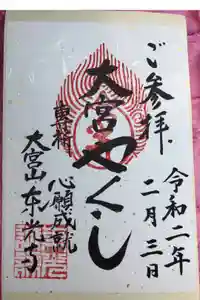 ご参拝
令和二年
二月三日
大宮やくし
心願成就
大宮山東光寺